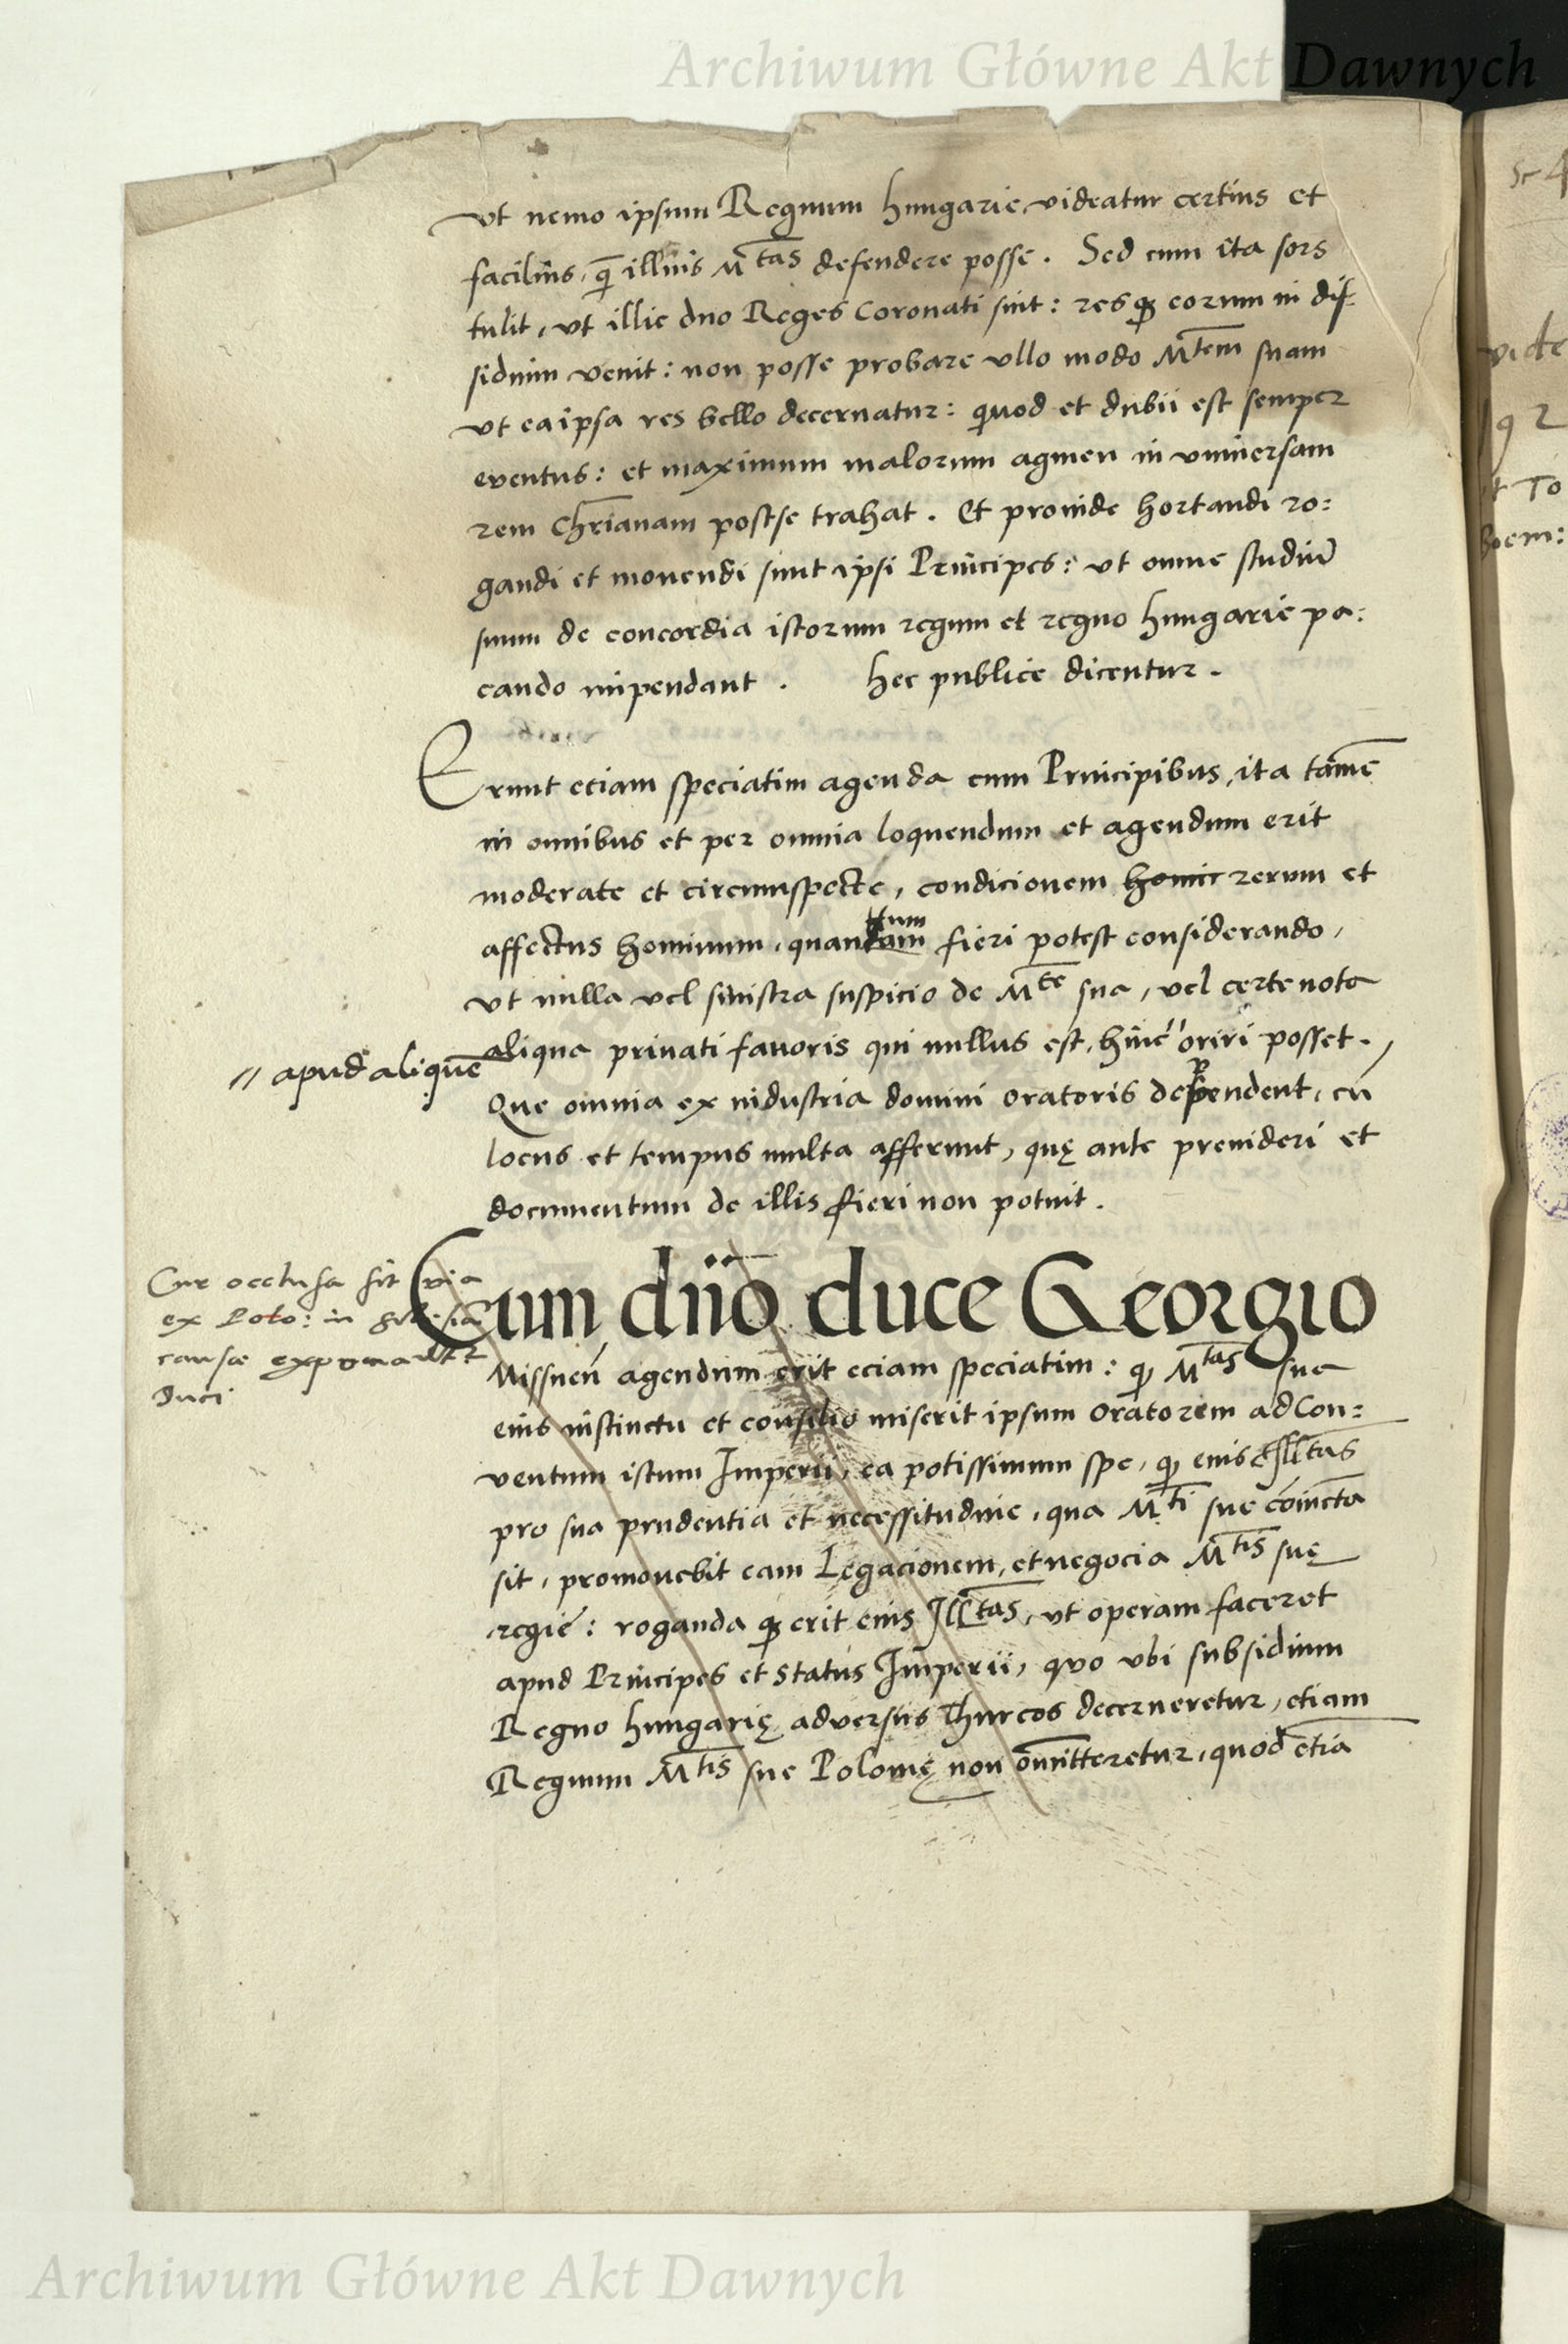 Archiwum Główne Akt Dawnych
vt nemo ipsum Regnum hungarie videatur certius et
facilius, q̄ illius M^tas defendere posse. Sed cum ita sors
tulit, vt illic duo Reges Coronati sint: resq̢ eorum in dis-
sidium venit: non posse probare vllo modo M^tem suam
vt ea ipsa res bello decernatur: quod et dubii est semper
eventus: et maximum malorum agmen in vniuersam
rem Chr̄ianam post se trahat. Et proinde hortandi ro:
gandi et monendi sunt ipsi Principes: vt omne studiū
suum de concordia istorum regum et regno hungarie pa:
cando impendant. hec publice dicentur.
Erunt eciam speciatim agenda cum Principibus, ita tamē
in omnibus et per omnia loquendum et agendum erit
moderate et circumspecte, condicionem homi rerum et
affectus hominum, quantum fieri potest considerando,
vt nulla vel sinistra suspicio de M^te sua, vel certe nota
aliqua priuati fauoris qui nullus est, hinc '' oriri posset.
'' apud aliquē
Que omnia ex industria domini oratoris dependent, cū
locus et tempus multa afferunt, quę ante preuideri et
documentum de illis fieri non potuit.
Cum dño duce Georgio
Cur occlusa sit via
ex Polo: in
causæ exponantur
Duci
Missnēn agendum erit eciam speciatim: q̢ M^tas sua
eius instinctu et consilio miserit ipsum oratorem ad Con:
ventum istum Imperii, ea potissimum spe, q̢ eius Ill^tas
pro sua prudentia et necessitudine, qua M^ti sue cōiuncta
sit, promouebit eam Legacionem, et negocia M^tis suę
regie: rogandaq̢ erit eius Ill^tas, vt operam faceret
apud Principes et Status Imperii, quo vbi subsidium
Regno hungarię adversus Thurcos decerneretur, etiam
Regnum M^tis sue Polonię non omitteretur, quod etiā
Archiwum Główne Akt Dawnych